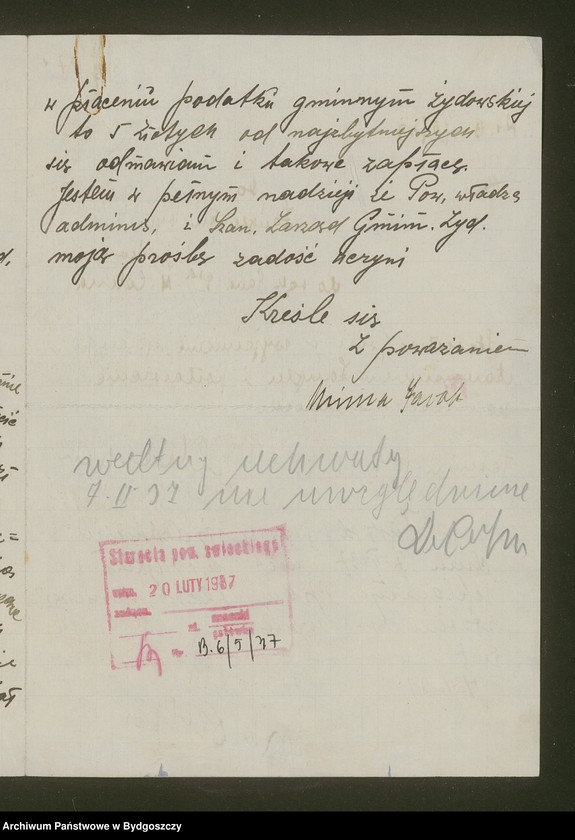 w płaceniu podatku gminnym żydowskiej
to 5 złotych od najzbytniejszych
się odmawiam i takowe zapłacę.
Jestem w pełnym nadzieji że Pow. władzę
adminis, i Szan. Zarząd Gmim. Żyd.
moją prośbę zadość uczyni
Kreśle się
z poważaniem
Minna Jacob
według uchwały
7. II 37 nie uwzględnione
Starosta pow. świeckiego
wpłn. 20 LUTY 1937
załączn.
zł.
Nr. B.6/5/37
Archiwum Państwowe w Bydgoszczy